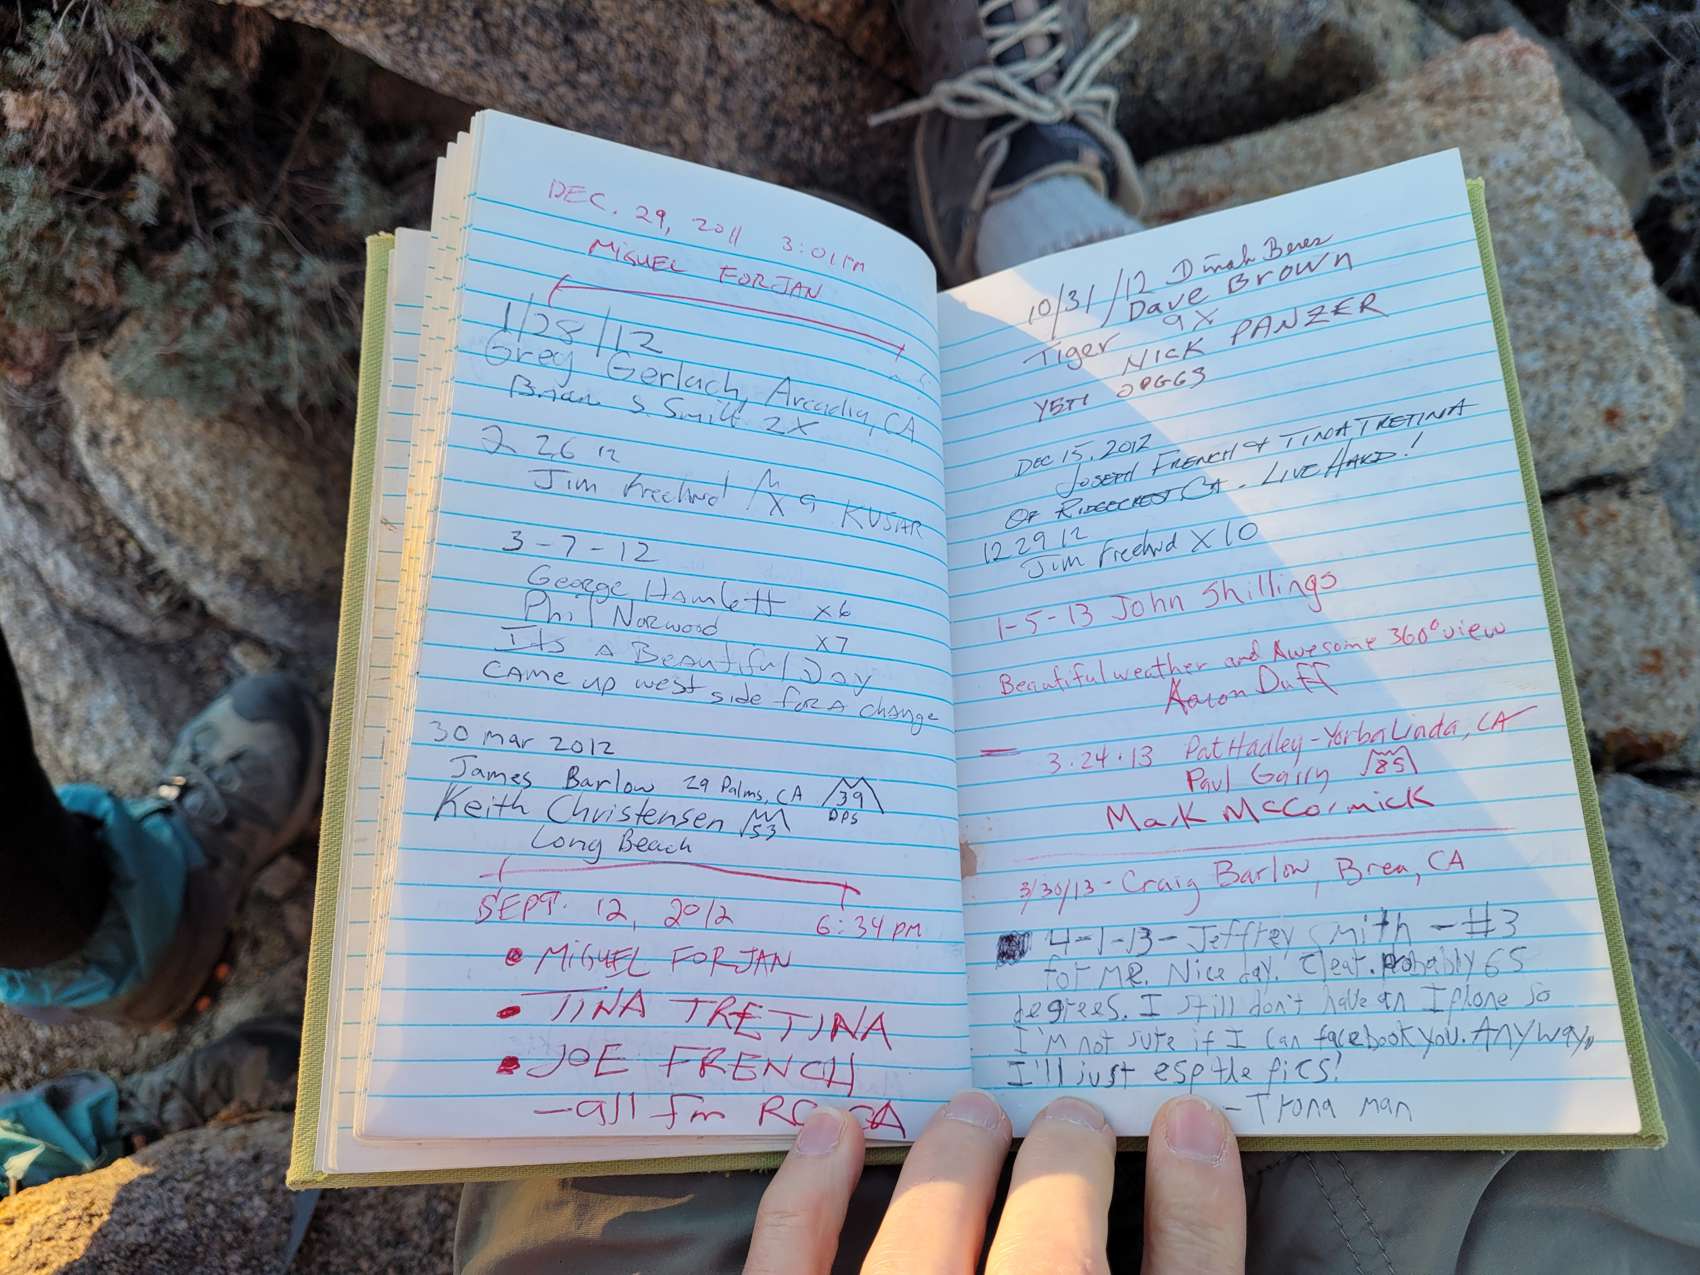 DEC. 29, 2011 3:01PM
MIGUEL FORJAN
1/28/12
Greg Gerlach, Arcadia, CA
Brian S. Smith 2X
2 26 12
Jim X9 KUSAR
3-7-12
George Hamlett x6
Phil Norwood x7
Its A Beautiful Day
CAME up west side for A change
30 mar 2012
James Barlow 29 Palms, CA 39
DPS
Keith Christensen 53
Long Beach
SEPT. 12, 2012 6:34 PM
• MIGUEL FORJAN
• TINA TRETINA
• JOE FRENCH
- all fm RC CA
10/31/12 Dinah
Dave Brown
Tiger 9X
NICK PANZER
YETI
DEC 15, 2012
JOSEPH FRENCH & TINA TRETINA
OF RIDGECREST CA. LIVE HARD!
12 29 12
Jim x10
1-5-13 John Shillings
Beautiful weather and Awesome 360° view
Aaron Duff
3.24.13 Pat Hadley - Yorba Linda, CA
Paul Garry 85
Mark McCormick
3/30/13 - Craig Barlow, Brea, CA
4-1-13 - Jeffrey Smith - #3
for me. Nice day. Clear. Probably 65
degrees. I still don't have an Iphone so
I'm not sure if I can facebook you. Anyway,
I'll just esp the pics!
- Trona man